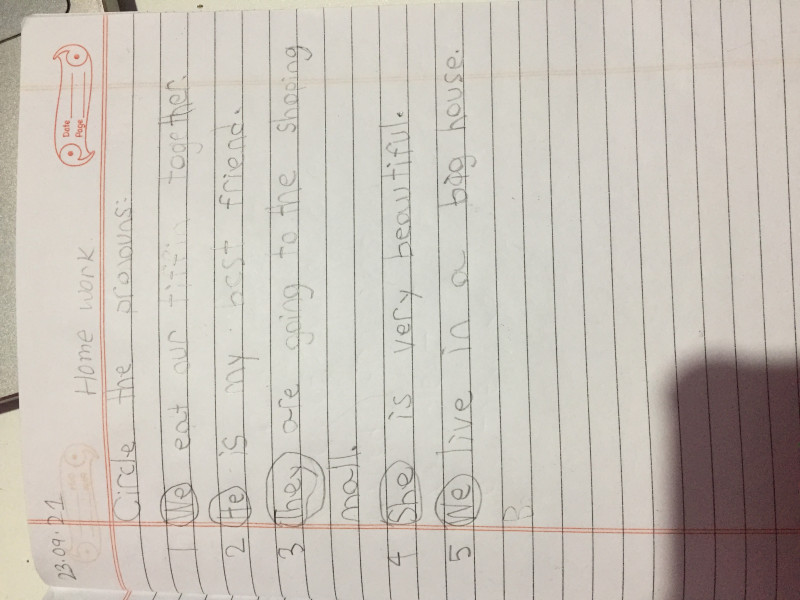 23.09.21
Date
Page
Home work
Circle the pronouns:
1 We eat our tiffin together.
2 He is my best friend.
3 They are going to the shoping
mall.
4 She is very beautiful.
5 We live in a big house.
B